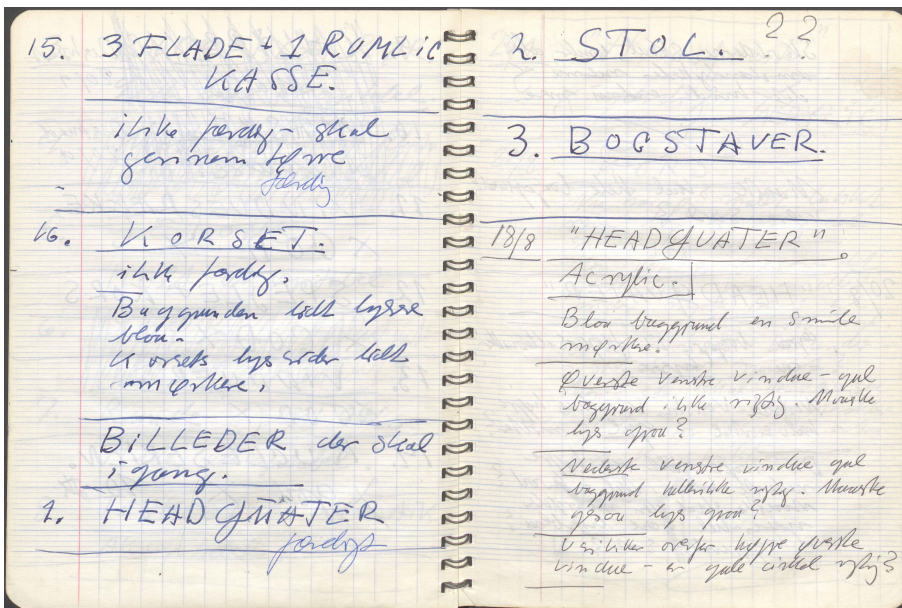 15. 3 FLADE + 1 RUMLIG
KASSE.
ikke færdig - skal
gennem
færdig
16. KORSET.
ikke færdig.
Baggrunden lidt lysere
blaa.
Korsets lyssider lidt
mørkere.
BILLEDER der skal
igang.
1. HEADQUATER
færdigt
22
2. STOL.
3. BOGSTAVER.
18/8 "HEADQUATER".
Acrylic.
Blaa baggrund en smule
mørkere.
Øverste venstre vindue - gul
baggrund ikke rigtig. Maaske
lys graa?
Nederste venstre vindue gul
baggrund hellerikke rigtig. Maaske
lys graa?
overfor højre øverste
vindue - er gule cirkel rigtig?